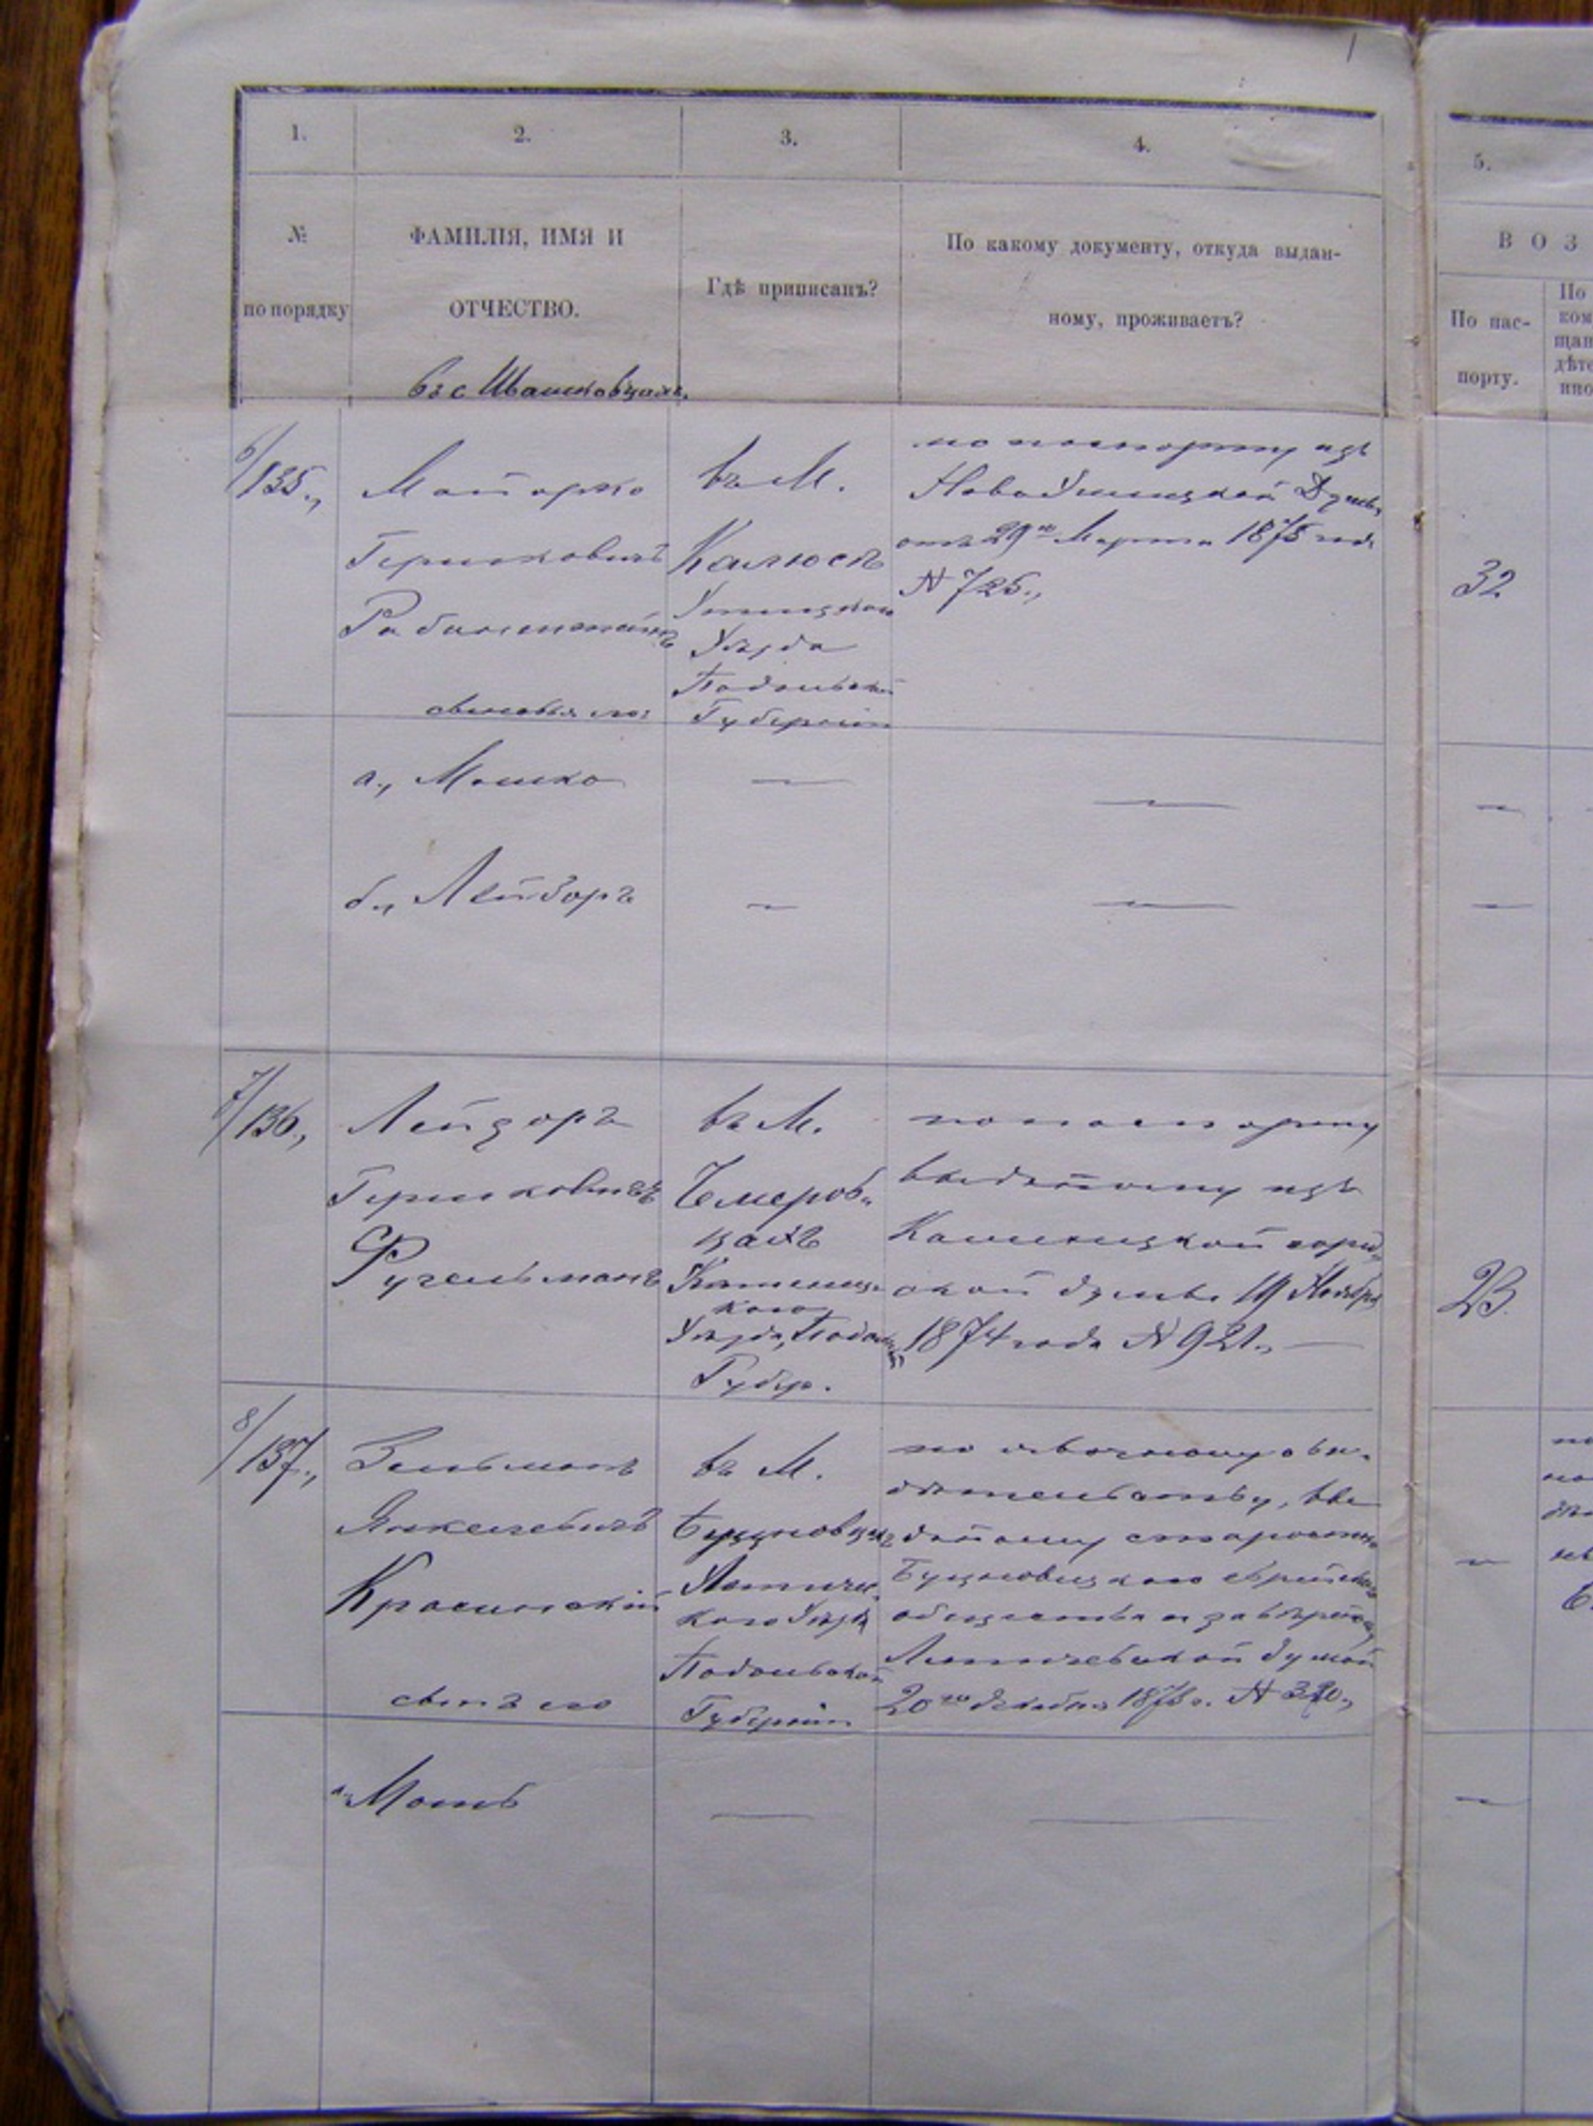 1
1.
2.
3.
4.
5.
№
по порядку
ФАМИЛІЯ, ИМЯ И
ОТЧЕСТВО.
Гдѣ приписанъ?
По какому документу, откуда выдан-
ному, проживаетъ?
В О З
По пас-
порту.
По
ком
щан
дѣте
ино
въ с
6/135.,
Майорко
Гершковичъ
сыновья его:
въ М.
Калюсѣ
Ушицкаго
Уѣзда
Подольской
Губерніи
по паспорту изъ
НовоУшицкой Думы,
отъ 29го Марта 1875 года
№ 725.,
32
а., Мошко
б., Лейзоръ
7/136.,
Лейзоръ
Гершковичъ
Фугельманъ
въ М.
Чемеров-
цахъ
Каменец-
кого
Уѣзда, Подольской
Губер.
по паспорту
выданному изъ
Каменецкой город-
ской думы 19 Ноября
1874 года № 921.,
23.
8/137.,
Зельманъ
Янкелевичъ
Красинскій
сынъ его
въ М.
Бущновцахъ
Летичев-
каго Уѣзда
Подольской
Губерніи
по явочному сви-
дѣтельству, вы-
данному старостою
Еврейскаго
общества и завѣренному
Летичевской думой
20го декабря
а., Мотъ